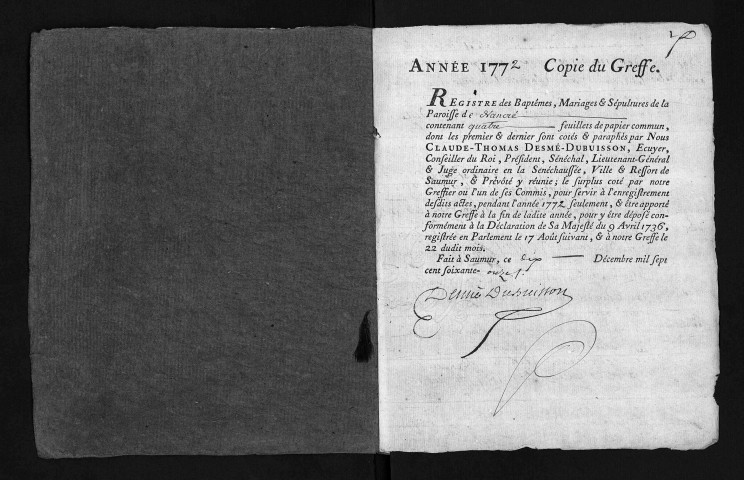 ANNÉE 1772 Copie du Greffe.
REGISTRE des Baptêmes, Mariages & Sépultures de la
Paroisse de Nancré
contenant quatre feuillets de papier commun,
dont les premier & dernier sont cotés & paraphés par Nous
CLAUDE-THOMAS DESMÉ-DUBUISSON, Ecuyer,
Conseiller du Roi, Président, Sénéchal, Lieutenant-Général
& Juge ordinaire en la Sénéchaussée, Ville & Ressort de
Saumur, & Prévôté y réunie; le surplus coté par notre
Greffier ou l'un de ses Commis, pour servir à l'enregistrement
desdits actes, pendant l'année 1772 seulement, & être apporté
à notre Greffe à la fin de ladite année, pour y être déposé con-
formément à la Déclaration de Sa Majesté du 9 Avril 1736,
registrée en Parlement le 17 Août suivant, & à notre Greffe le
22 dudit mois.
Fait à Saumur, ce dix Décembre mil sept
cent soixante onze
Desmé Dubuisson